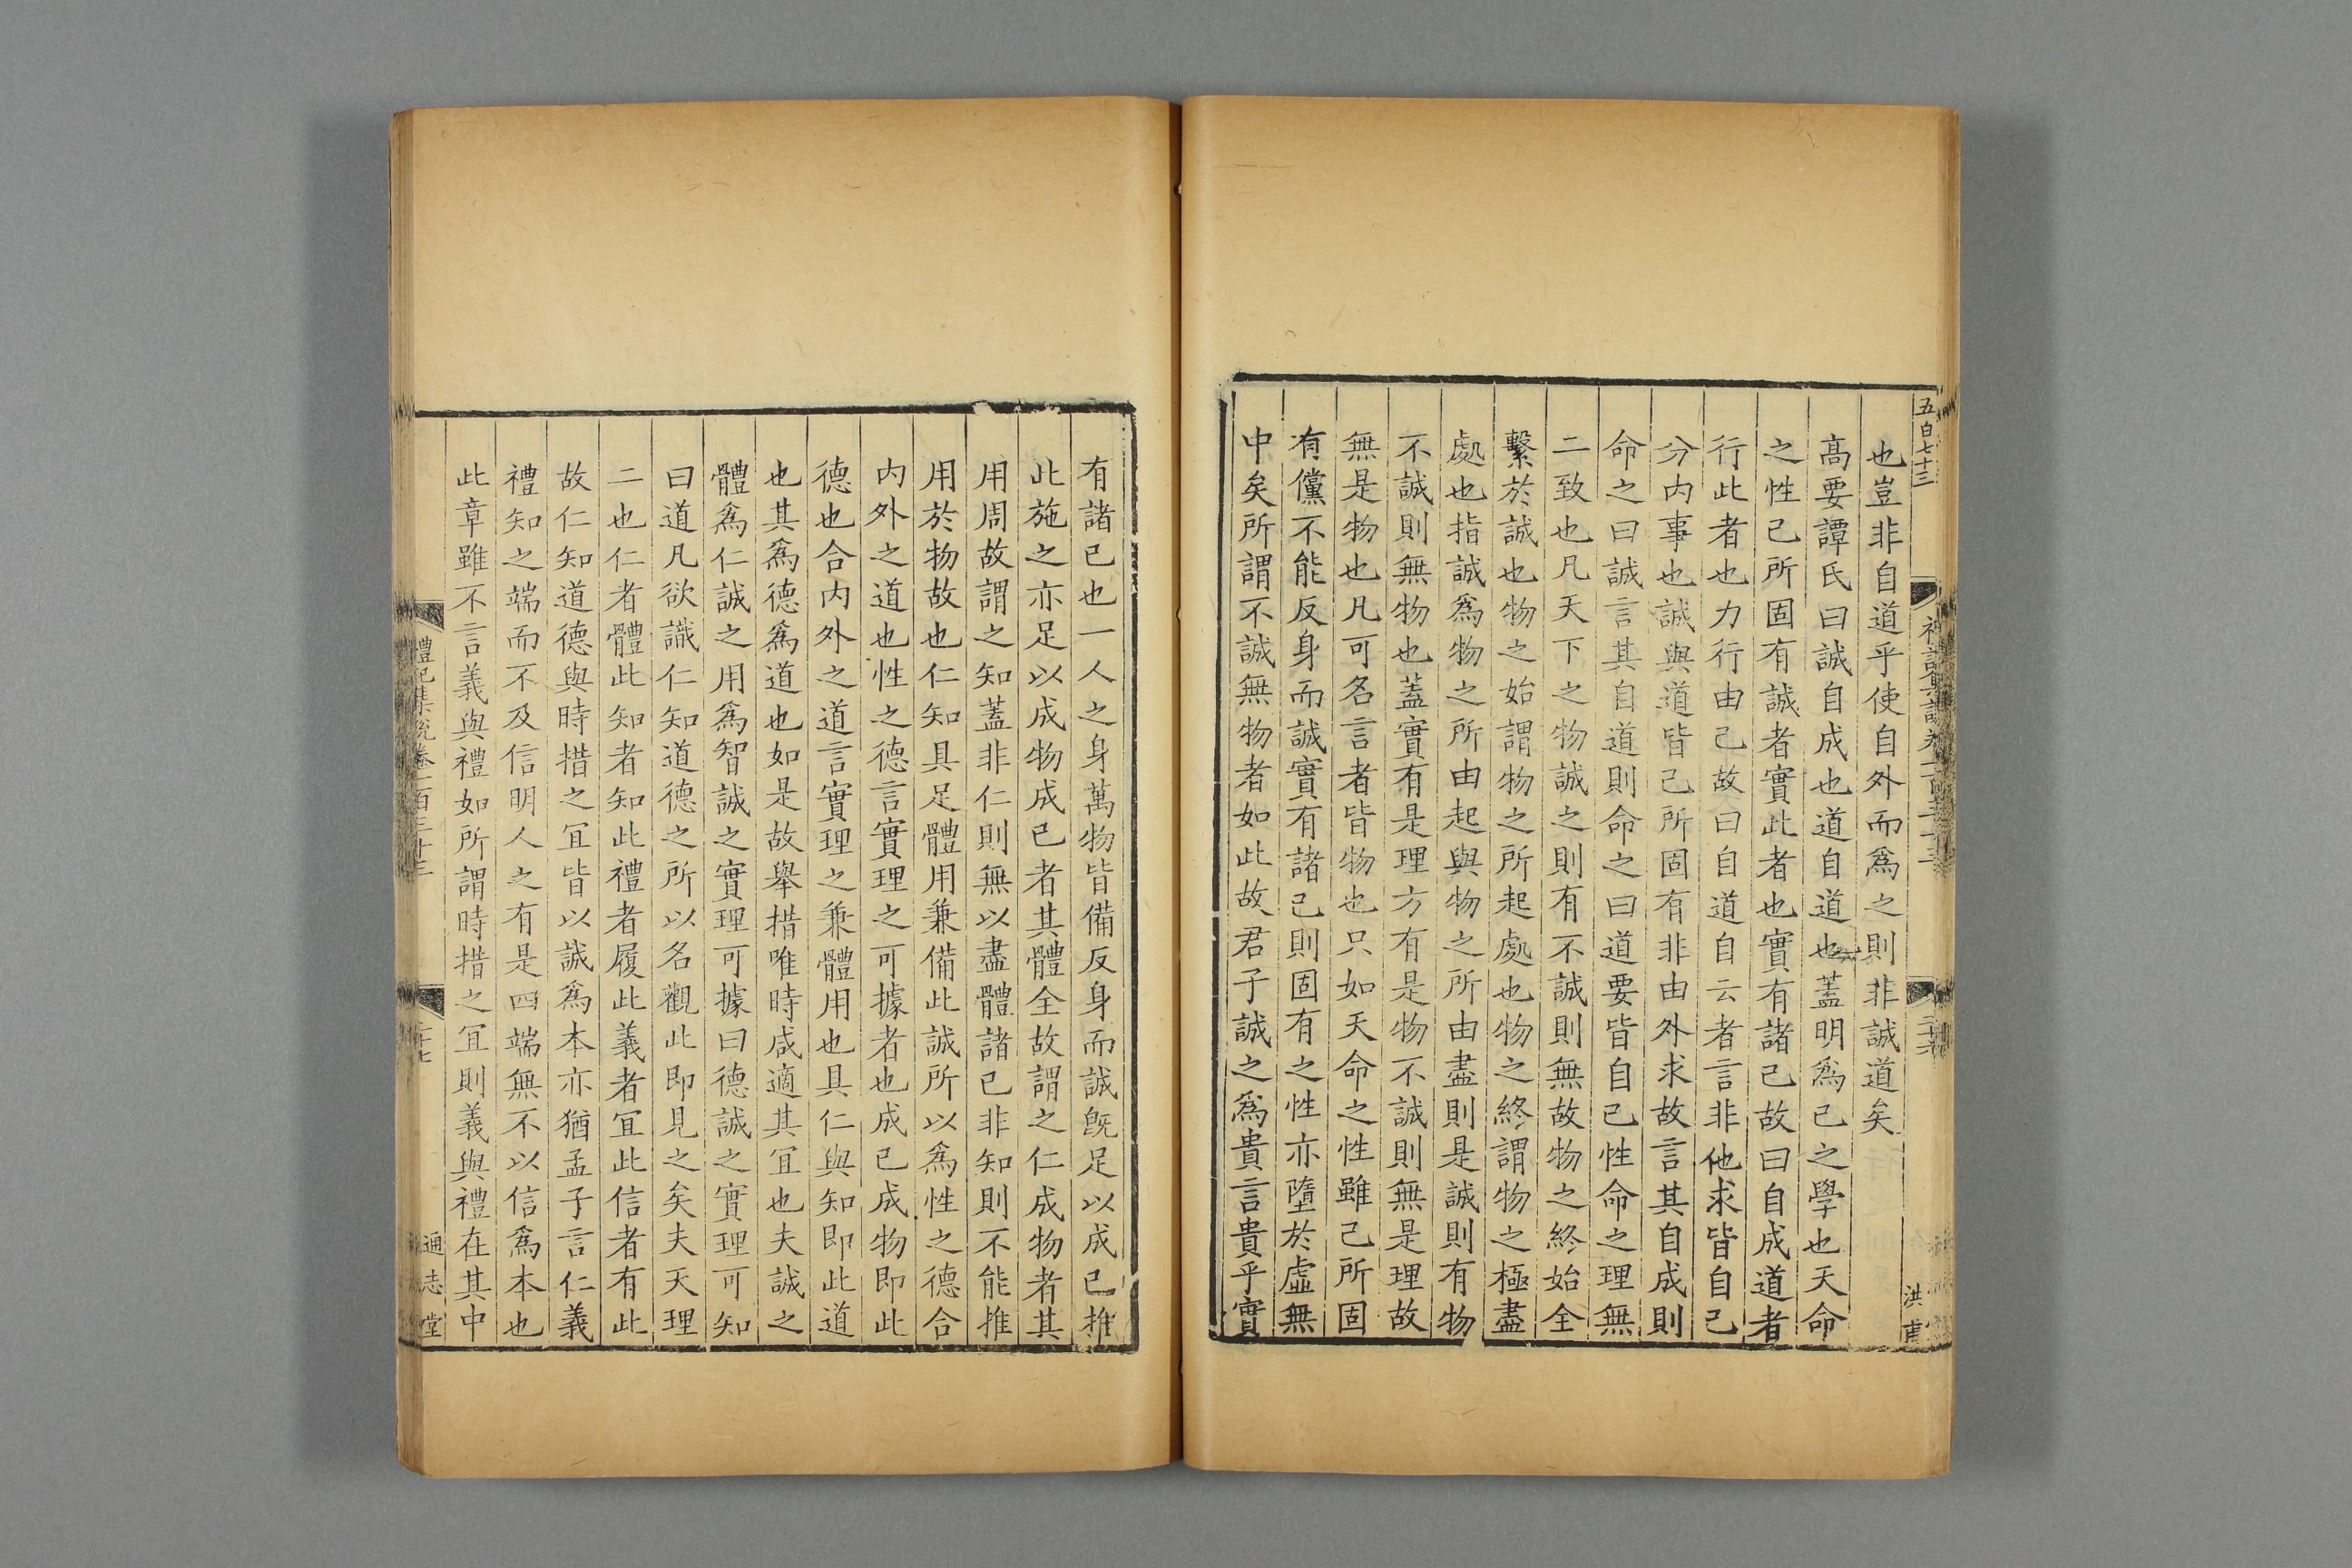 五百七十三
也豈非自道乎使自外而爲之則非誠道矣
高要譚氏曰誠自成也道自道也蓋明爲己之學也天命
之性己所固有誠者實此者也實有諸己故曰自成道者
行此者也力行由己故曰自道自云者言非他求皆自己
分内事也誠與道皆己所固有非由外求故言其自成則
命之曰誠言其自道則命之曰道要皆自己性命之理無
二致也凡天下之物誠之則有不誠則無故物之終始全
繫於誠也物之始謂物之所起處也物之終謂物之極盡
處也指誠爲物之所由起與物之所由盡則是誠則有物
不誠則無物也蓋實有是理方有是物不誠則無是理故
無是物也凡可名言者皆物也只如天命之性雖己所固
有儻不能反身而誠實有諸己則固有之性亦墮於虛無
中矣所謂不誠無物者如此故君子誠之爲貴言貴乎實
洪
有諸己也一人之身萬物皆備反身而誠旣足以成己推
此施之亦足以成物成己者其體全故謂之仁成物者其
用周故謂之知蓋非仁則無以盡體諸己非知則不能推
用於物故也仁知具足體用兼備此誠所以爲性之德合
内外之道也性之德言實理之可據者也成己成物即此
德也合内外之道言實理之兼體用也具仁與知即此道
也其爲德爲道也如是故舉措唯時咸適其宜也夫誠之
體爲仁誠之用爲智誠之實理可據曰德誠之實理可知
曰道凡欲識仁知道德之所以名觀此即見之矣夫天理
二也仁者體此知者知此禮者履此義者宜此信者有此
故仁知道德與時措之宜皆以誠爲本亦猶孟子言仁義
禮知之端而不及信明人之有是四端無不以信爲本也
此章雖不言義與禮如所謂時措之宜則義與禮在其中
禮記集說卷一百三十三
二十七
通志堂